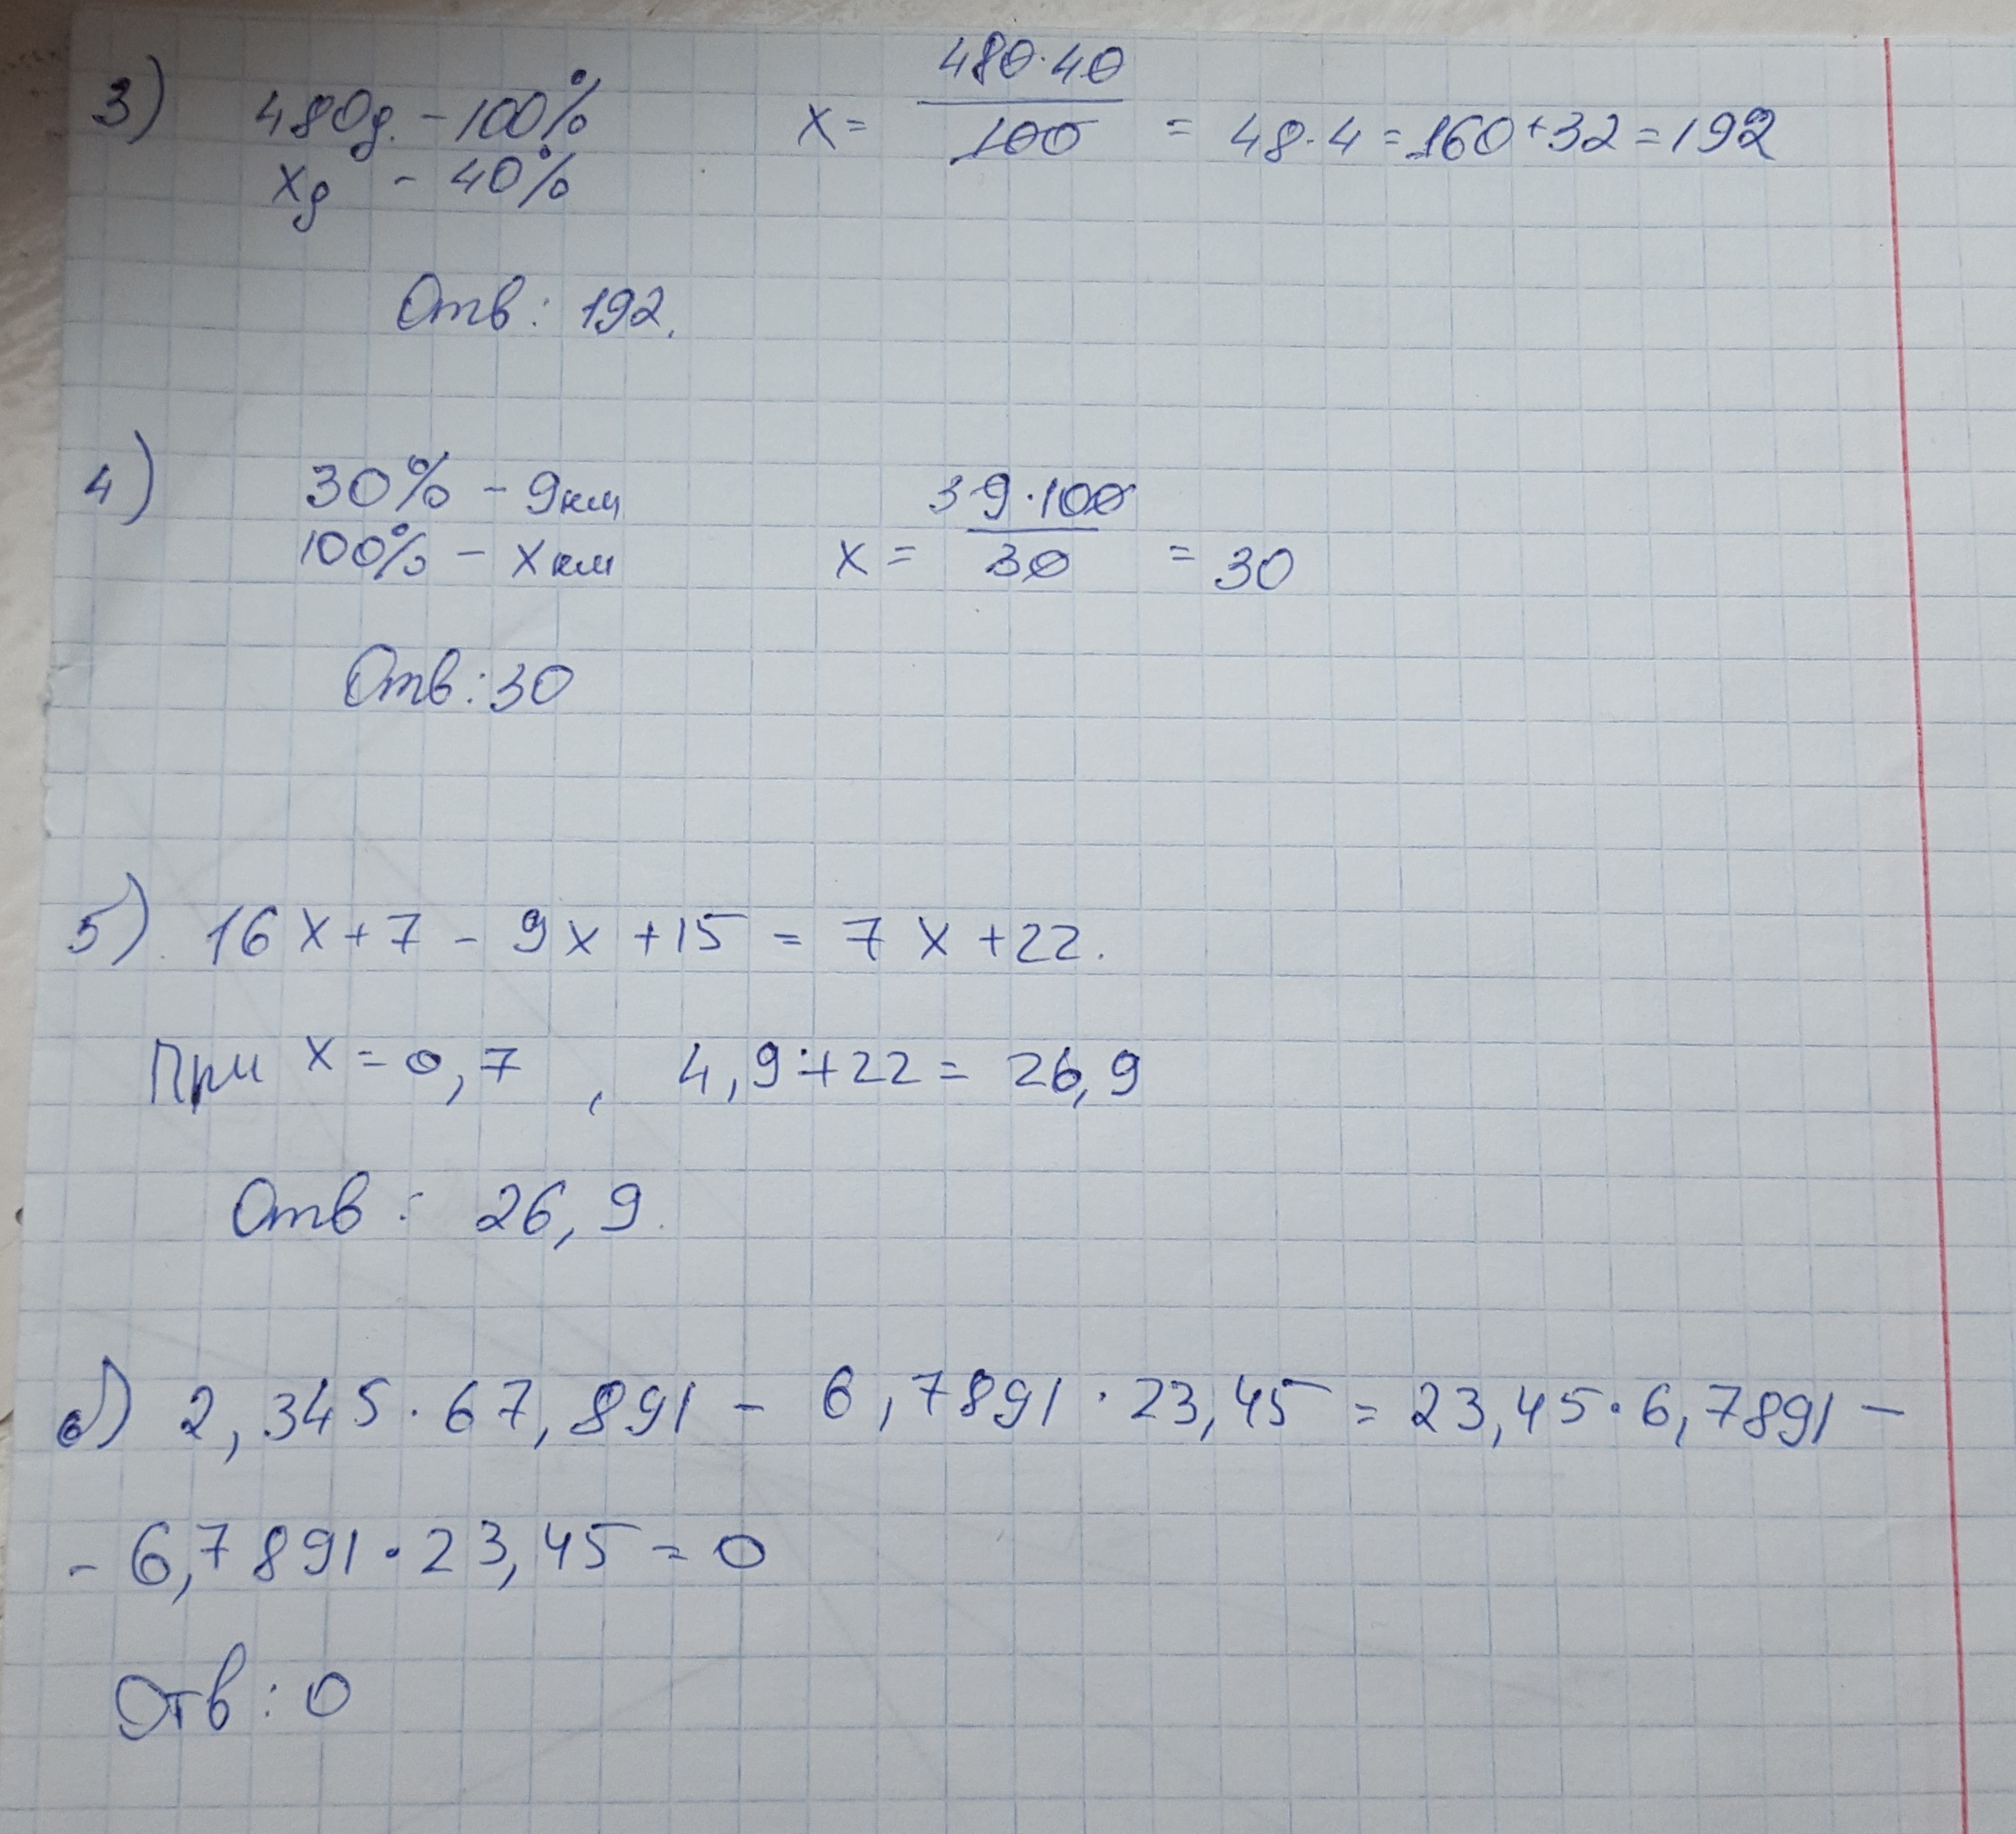 3) 480д. - 100% x = 480·40 / 100 = 48·4 = 160+32 = 192
xд - 40%
Отв: 192.
4) 30% - 9км x = 3 9·100 / 30 = 30
100% - x км
Отв: 30
5) 16x+7 - 9x +15 = 7x +22.
При x = 0,7 , 4,9+22 = 26,9
Отв: 26,9.
6) 2,345·67,891 - 6,7891·23,45 = 23,45·6,7891 -
- 6,7891·23,45 = 0
Отв: 0